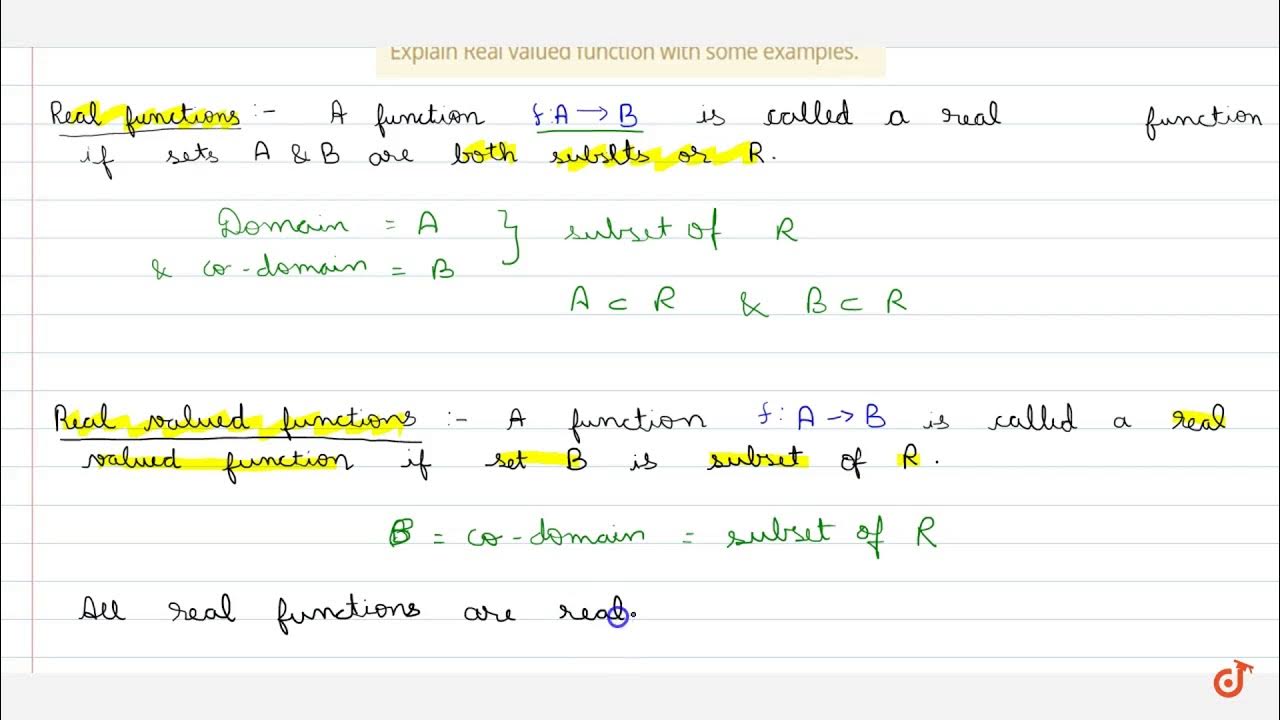 Explain Real valued function with some examples.
Real functions :- A function f: A → B is called a real function
if sets A & B are both subsets or R.
Domain = A } subset of R
& co-domain = B
A ⊂ R & B ⊂ R
Real valued functions :- A function f: A → B is called a real
valued function if set B is subset of R.
B = co-domain = subset of R
All real functions are real